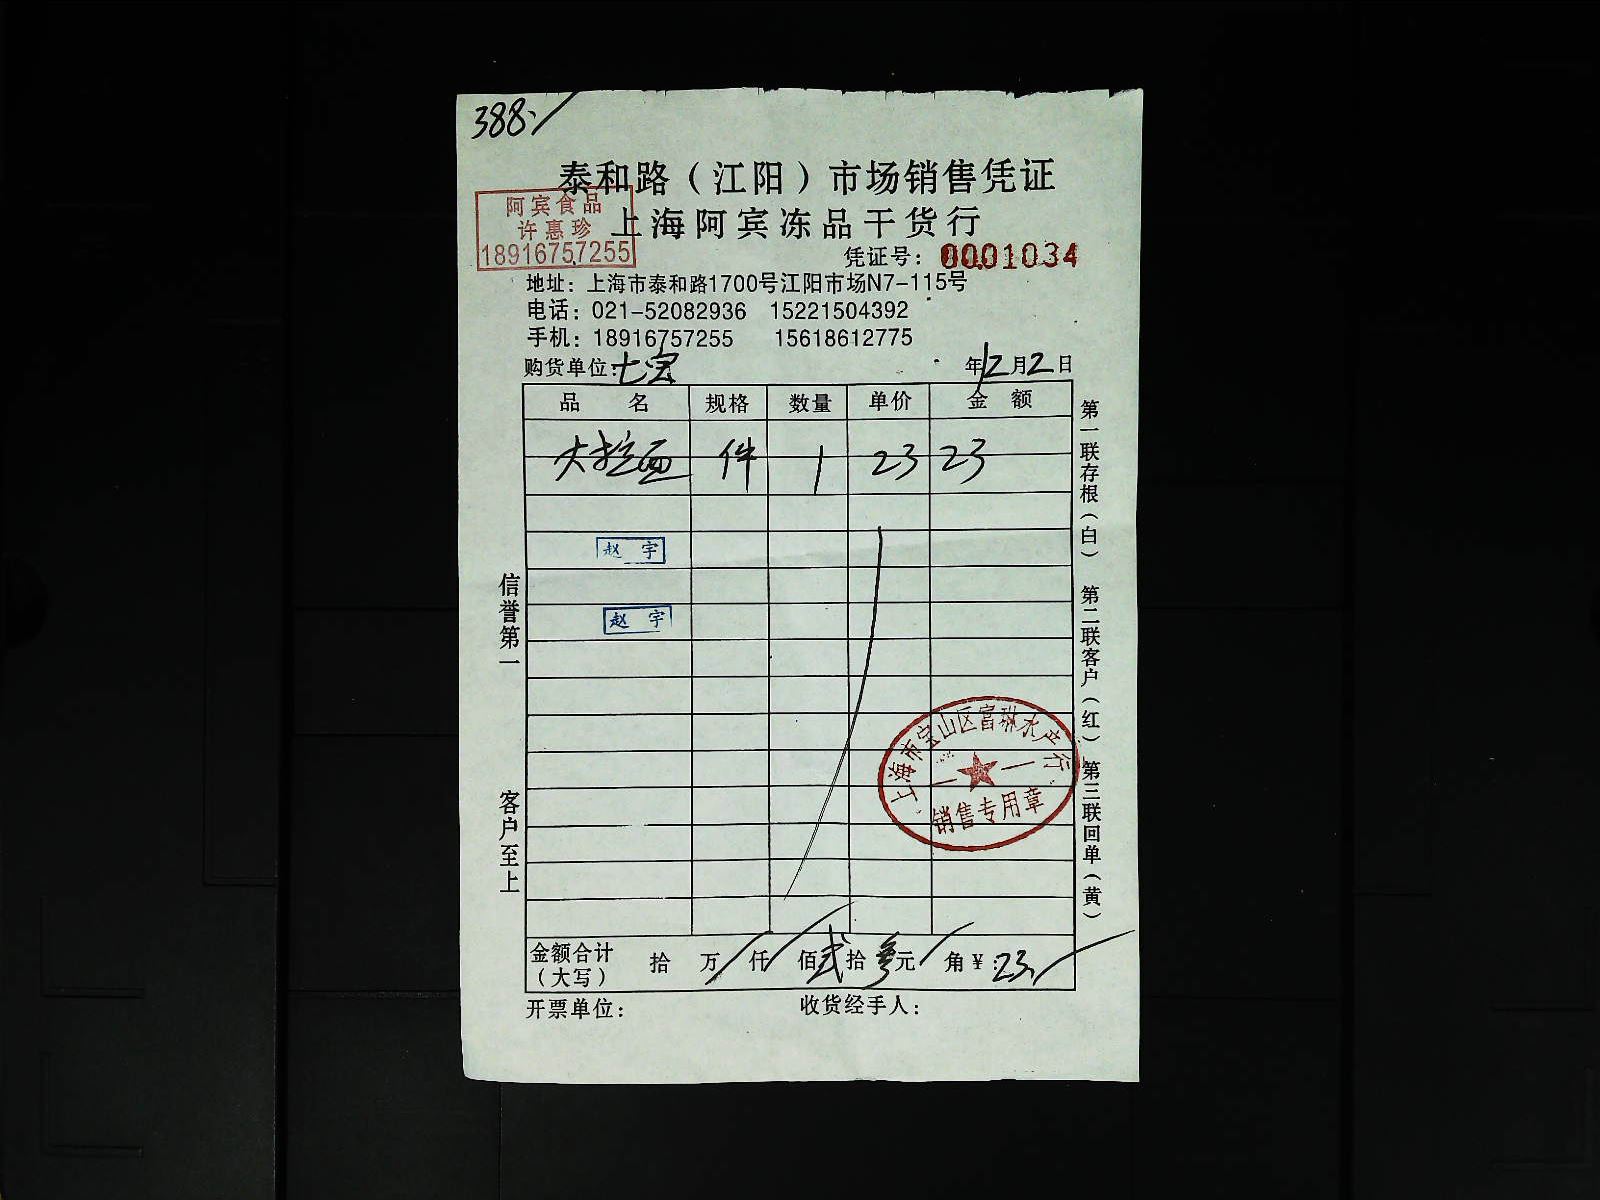 388.
泰和路（江阳）市场销售凭证
阿宾食品
许惠珍
18916757255
上海阿宾冻品干货行
凭证号：0001034
地址：上海市泰和路1700号江阳市场N7-115号
电话：021-52082936 15221504392
手机：18916757255 15618612775
购货单位：七宝 年12月2日
品 名 规格 数量 单价 金 额
大拉面 件 1 23 23
赵 宇
赵 宇
上海市宝山区富琳水产行
销售专用章
金额合计（大写） 拾 万 仟 佰 弍 拾 叁 元 角 ￥：23.
开票单位： 收货经手人：
信誉第一 客户至上
第一联存根（白） 第二联客户（红） 第三联回单（黄）